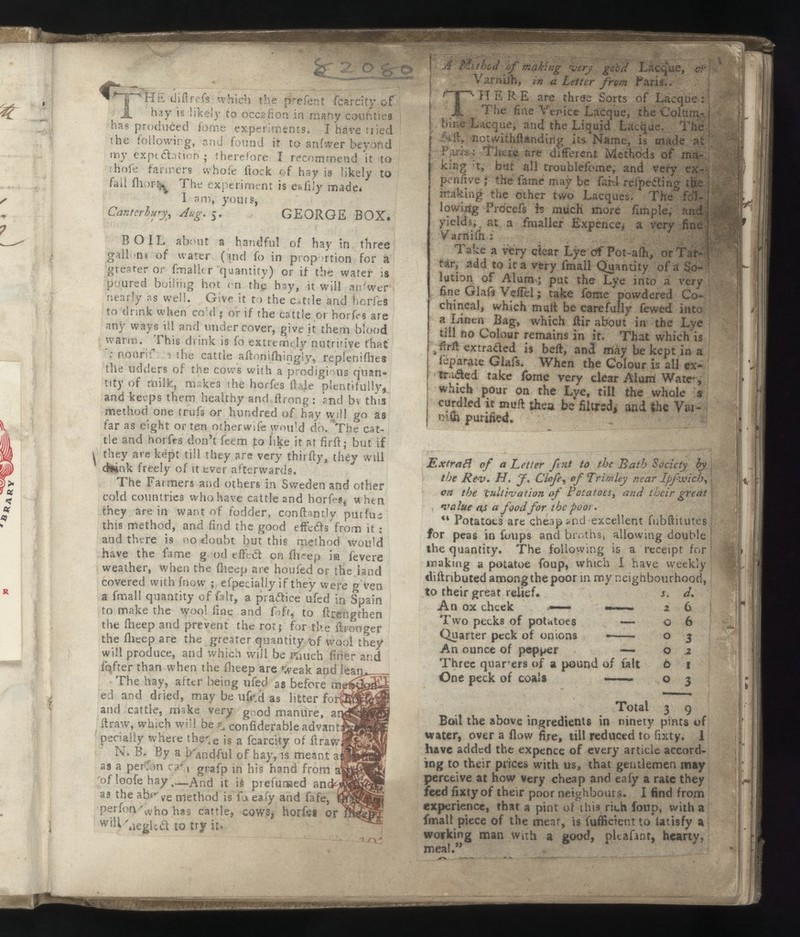 82080
THE distress which the present scarcity of
hay is likely to occasion in many counties
has produced some experiments. I have tried
the following, and found it to answer beyond
my expectation; therefore I recommend it to
those farmers whose stock of hay is likely to
fall short. The experiment is easily made.
I am, yours,
Canterbury, Aug. 5. GEORGE BOX.
BOIL about a handful of hay in three
gallons of water (and so in proportion for a
greater or smaller quantity) or if the water is
poured boiling hot on the hay, it will answer
nearly as well. Give it to the cattle and horses
to drink when cold; or if the cattle or horses are
any ways ill and under cover, give it them blood
warm. This drink is so extremely nutritive that
the cattle astonishingly, replenishes
the udders of the cows with a prodigious quan-
tity of milk, makes the horses stale plentifully,
and keeps them healthy and strong: and by this
method one truss or hundred of hay will go as
far as eight or ten otherwise would do. The cat-
tle and horses don't seem to like it at first; but if
they are kept till they are very thirsty, they will
drink freely of it ever afterwards.
The Farmers and others in Sweden and other
cold countries who have cattle and horses, when
they are in want of fodder, constantly pursue
this method, and find the good effects from it:
and there is no doubt but this method would
have the same good effect on sheep in severe
weather, when the sheep are housed or the land
covered with snow; especially if they were given
a small quantity of salt, a practice used in Spain
to make the wool fine and soft, to strengthen
the sheep and prevent the rot; for the stronger
the sheep are the greater quantity of wool they
will produce, and which will be much finer and
softer than when the sheep are weak and lean.
The hay, after being used as before
ed and dried, may be used as litter for
and cattle, make very good manure,
straw, which will be a considerable
pecially where there is a scarcity of straw.
N. B. By a handful of hay, is meant
as a person can grasp in his hand from
of loose hay.—And it is presumed
as the above method is so easy and safe,
person who has cattle, cows, horses or
will neglect to try it.
A Method of making very good Lacque, or
Varnish, in a Letter from Paris.
THERE are three Sorts of Lacque:
The fine Venice Lacque, the Colum-
bine Lacque, and the Liquid Lacque. The
first, notwithstanding its Name, is made at
Paris: There are different Methods of ma-
king it, but all troublesome, and very ex-
pensive; the same may be said respecting the
making the other two Lacques. The fol-
lowing Process is much more simple, and
yields, at a smaller Expence, a very fine
Varnish:
Take a very clear Lye of Pot-ash, or Tar-
tar, add to it a very small Quantity of a So-
lution of Alum; put the Lye into a very
fine Glass Vessel; take some powdered Co-
chineal, which must be carefully sewed into
a Linen Bag, which stir about in the Lye
till no Colour remains in it. That which is
first extracted is best, and may be kept in a
separate Glass. When the Colour is all ex-
tracted take some very clear Alum Water,
which pour on the Lye, till the whole is
curdled it must then be filtred, and the Var-
nish purified.
Extract of a Letter sent to the Bath Society by
the Rev. H. J. Close, of Trimley near Ipswich,
on the cultivation of Potatoes, and their great
value as a food for the poor.
“ Potatoes are cheap and excellent substitutes
for peas in soups and broths, allowing double
the quantity. The following is a receipt for
making a potatoe soup, which I have weekly
distributed among the poor in my neighbourhood,
to their great relief. s. d.
An ox cheek — — 2 6
Two pecks of potatoes — 0 6
Quarter peck of onions — 0 3
An ounce of pepper — 0 2
Three quarters of a pound of salt 0 1
One peck of coals — 0 3
Total 3 9
Boil the above ingredients in ninety pints of
water, over a slow fire, till reduced to sixty. I
have added the expence of every article accord-
ing to their prices with us, that gentlemen may
perceive at how very cheap and easy a rate they
feed sixty of their poor neighbours. I find from
experience, that a pint of this rich soup, with a
small piece of the meat, is sufficient to satisfy a
working man with a good, pleasant, hearty,
meal.”